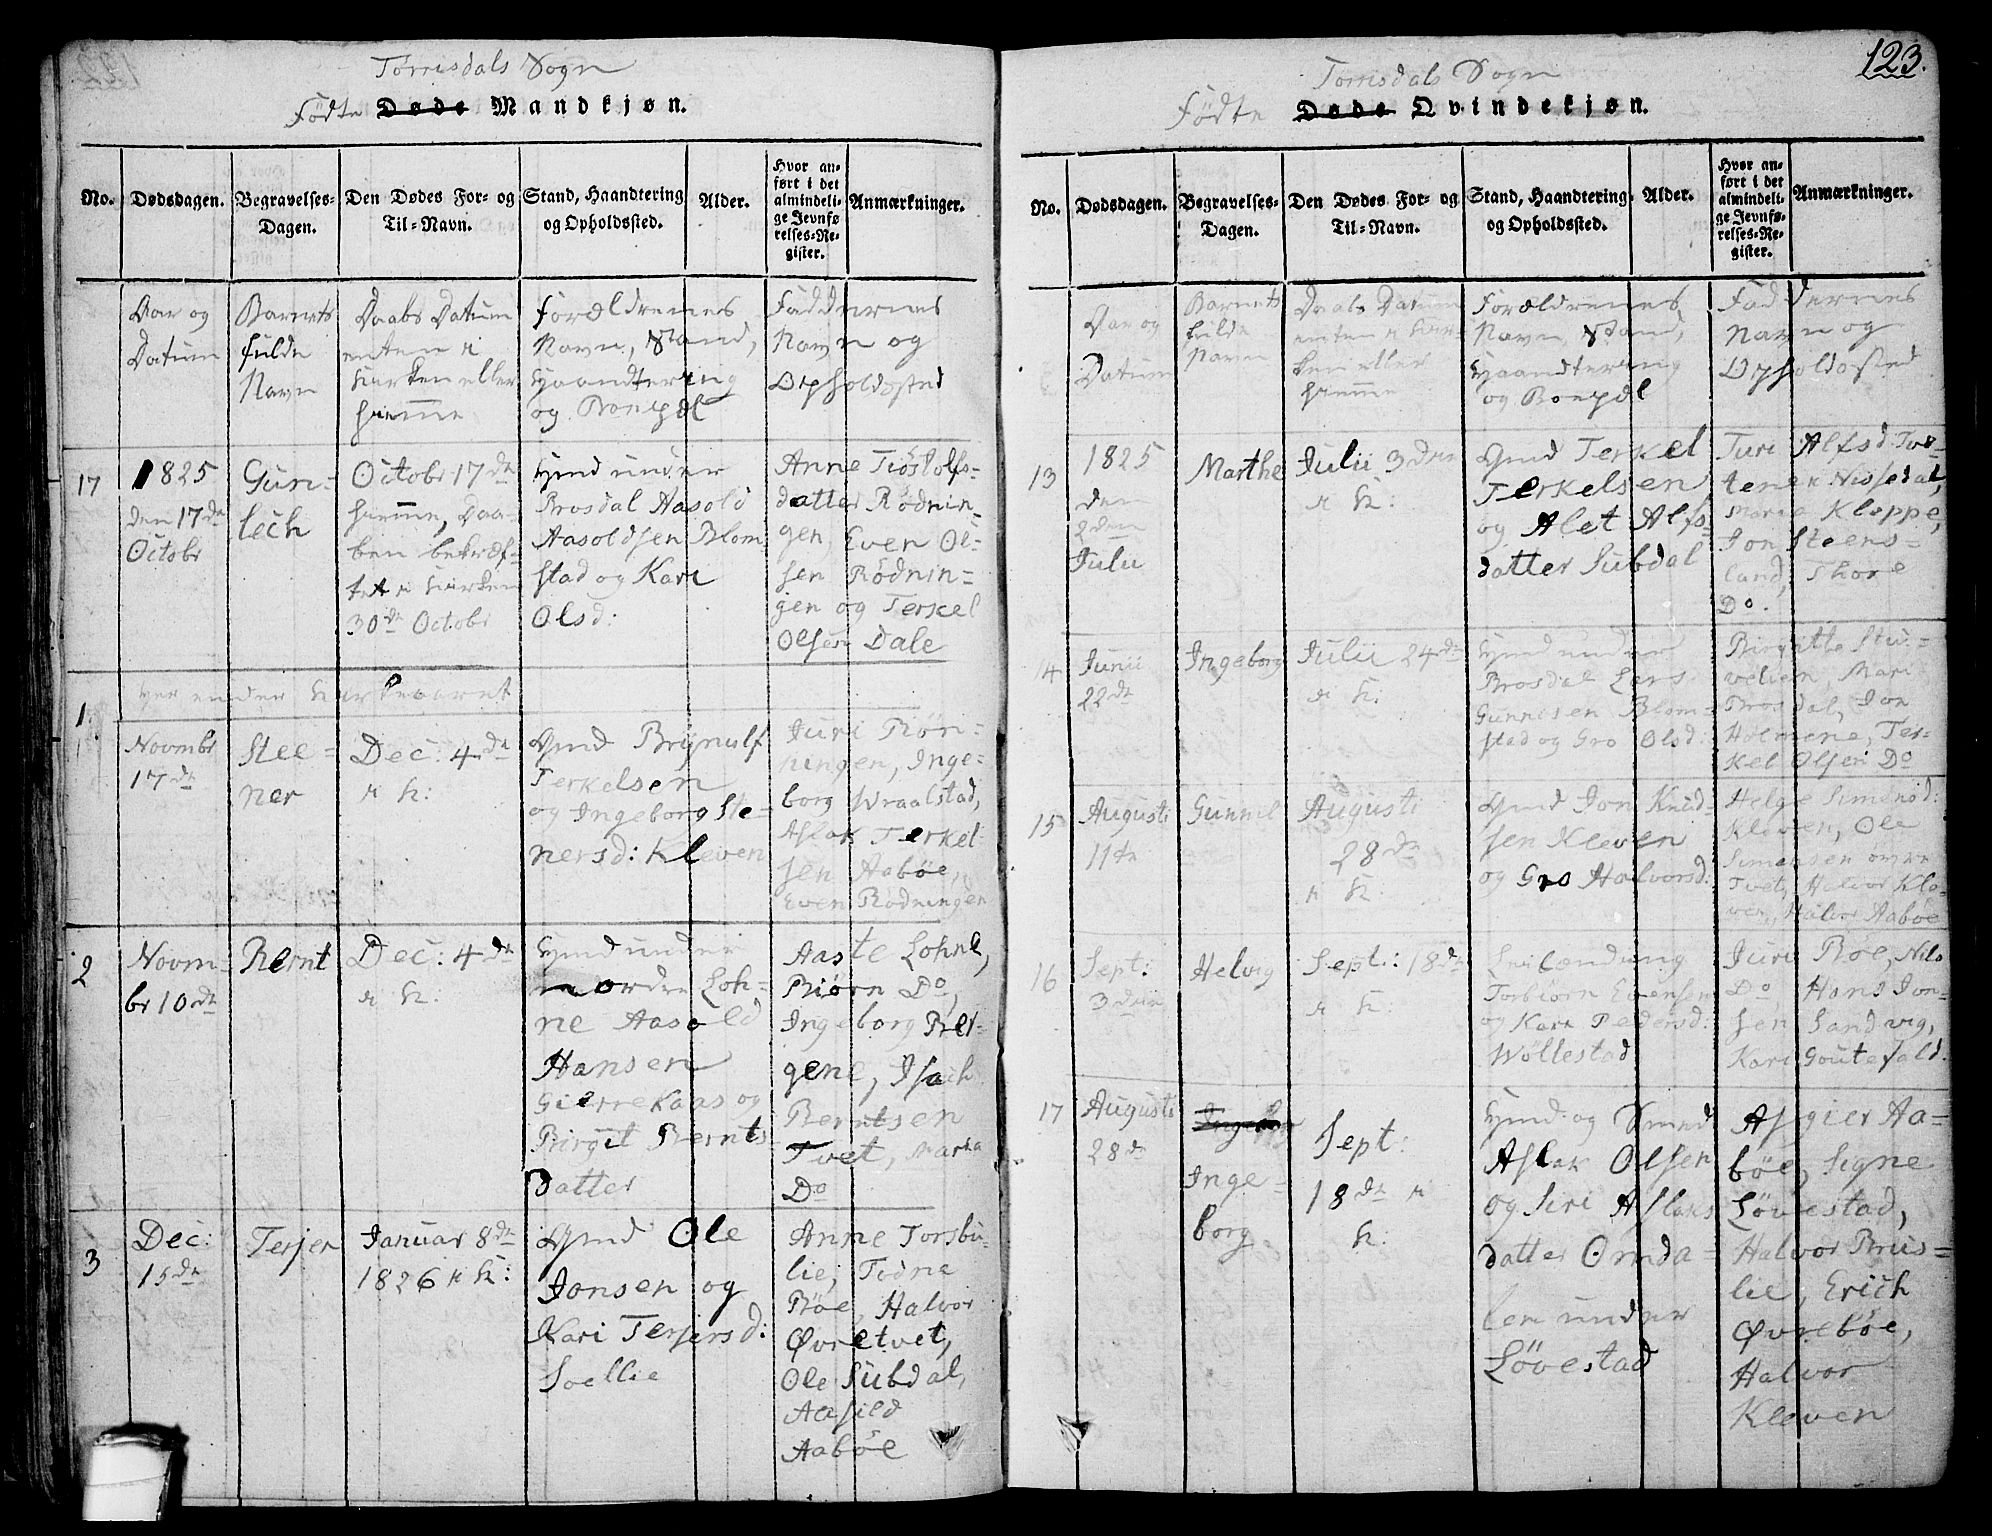 Torrisdals Sogn
Fødte Døde Mandkjøn.
No.
Dødsdagen.
Begravelses-
Dagen.
Den Dødes For- og
Til-Navn.
Stand, Haandtering
og Opholdssted.
Alder.
Hvor an-
ført i det
almindeli-
ge Jevnfø
relses-Re-
gister.
Anmærkninger.
Aar og
Datum
Barnets
fulde
Navn
Daabs Datum
enten i
Kirken eller
hiemme
Forældrenes
Navn, Stand,
Haandtering
og Bopæl
Faddernes
Navn og
Opholdssted
17
1825
den 17de
Octobr
Gun-
lech
Octobr 17de
hiemme, Daa-
ben bekræf-
tet i Kirken
30de Octobr
Hmd under
Brosdal Aasold
Aasoldsen Blom-
stad og Kari
Olsd:
Anne Tiøstolfs-
datter Rødnin-
gen, Even Ol-
sen Rødnin-
gen og Terkel
Olsen Dale
Her ender Kirkeaaret
1.
Novmbr
17de
Stee-
ner
Dec: 4de
i K:
Gmd Brynulf
Terkelsen
og Ingeborg Ste-
nersd: Kleven
Juri Røn-
ningen, Inge-
borg Wraalstad,
Aslak Terkel-
sen Aabøe,
Even Rødningen
2
Novm-
br 10de
Bernt
Dec: 4de
i K:
Hmd under
nordre Loh-
ne Aasold
Hansen
Gierrekaas og
Birgit Bernts
datter
Aaste Lohne,
Biørn Do,
Ingeborg Ber-
gene, Isach
Berntsen
Tvet, Maria
Do
3
Dec:
15de
Terjer
Januar 8de
1826 i K:
Gmd Ole
Jonsen og
Kari Terjersd:
Soellie
Anne Torsbu-
lie, Todne
Bøe, Halvor
Øvretvet,
Ole Subdal,
Aasild
Aabøe
123.
Torrisdals Sogn
Fødte Døde Qvindekjøn.
No.
Dødsdagen.
Begravelses-
Dagen.
Den Dødes For- og
Til-Navn.
Stand, Haandtering
og Opholdssted.
Alder.
Hvor an-
ført i det
almindeli-
ge Jevnfø-
relses-Re-
gister.
Anmærkninger.
Aar og
Datum
Barnets
fulde
Navn
Daabs Datum
enten i Kir-
ken eller
hiemme
Forældrenes
Navn, Stand,
Haandtering
og Bopæl
Faddernes
Navn og
Opholdssted
13
1825
den
2den
Julii
Marthe
Julii 3den
i K:
Gmd Terkel
Terkelsen
og Alet Alfs-
datter Subdal
Juri Alfsd: Tve-
tene i Nissedal,
Marie Kleppe,
Jon Steens-
land, Thore
Do.
14
Junii
22de
Ingeborg
Julii 24de
i K:
Hmd under
Brosdal Lars
Gunnesen Blom-
stad og Gro Olsd:
Birgitte Stu-
velien, Mari
Brosdal, Jon
Holmene, Ter-
kel Olsen Do
15
Augusti
11te
Gunnil
Augusti
28de
i K:
Gmd Jon Knud-
sen Kleven
og Gro Halvorsd:
Helge Simensd:
Kleven, Ole
Simensen øvre
Tvet, Halvor Kle-
ven, Halvor Aabøe
16
Sept:
3den
Helvig
Sept: 18de
i K:
Leilænding
Torbiørn Evensen
og Kari Pedersd:
Wøllestad
Juri Bøe, Nils
Do, Hans Jon-
sen Sandvig,
Kari Goutefald.
17
Augusti
28de
Inge-
borg
Sept:
18de i
K:
Hmd og Smed
Aslak Olsen
og Siri Aslaks
datter Ormda-
len under
Løvestad
Asgier Aa-
bøe, Signe
Løvestad,
Halvor Brus-
lie, Erich
Øvrebøe,
Halvor
Kleven